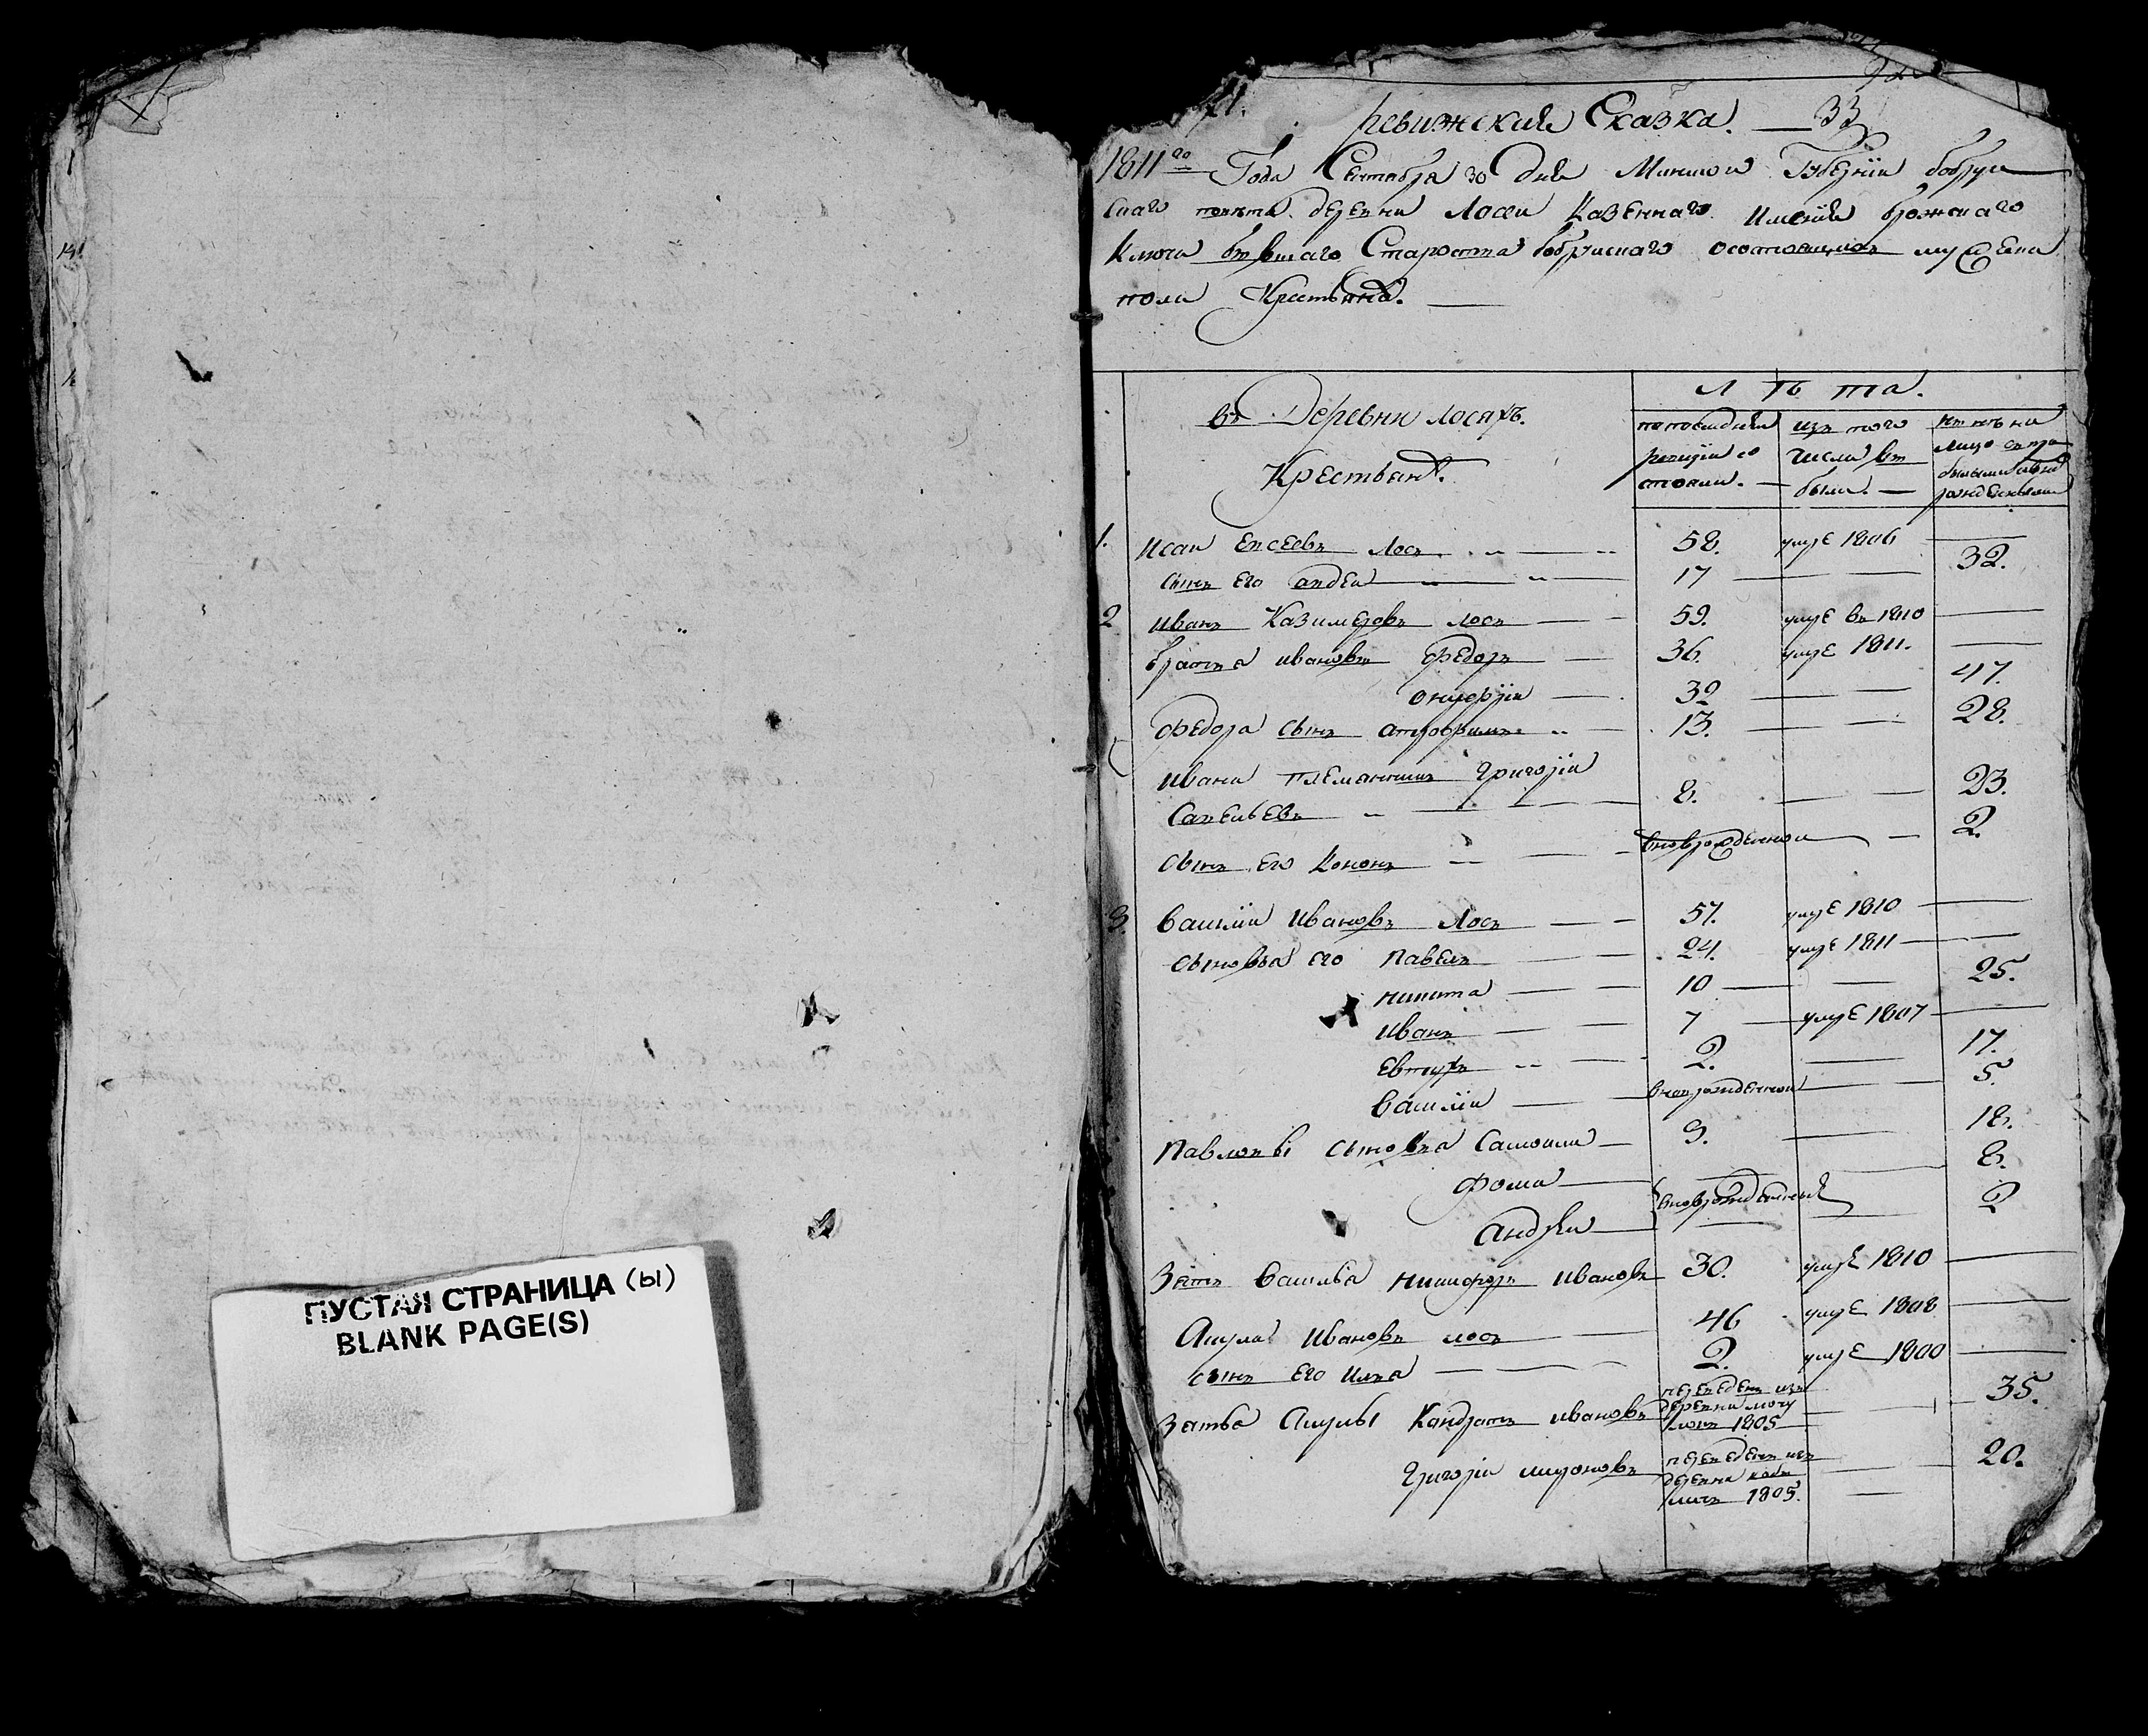 ПУСТАЯ СТРАНИЦА (Ы)
BLANK PAGE(S)
71.
ревижская Сказка. — 33
1811го Года Сентября 30 Дня Минской Губерніи бобруй
скаго повѣта деревни Лоси Казеннаго Именія брожскаго
Ключа бывшаго Староства бобруйскаго о состоящихъ мужеска
пола Крестьянъ. —
въ Деревни лосяхъ.
Крестьянъ.
Л ѣ та.
по последней ревизіи состояли. —
изъ того числа выбыли. —
рожденными
1. Исай Евсеевъ Лось 58. умре 1806 —
сынъ его андрей 17 — 32.
2 Иванъ Казимеровъ лось 59. умре въ 1810 —
братья ивановы Федоръ 36. умре 1811. —
онуфрій 32 — 47.
Федора сынъ 13. — 28.
Ивана племянникъ григорій
Савельевъ 8. — 23.
сынъ его Кононъ — вновьрожденной — 2.
3. Василій Ивановъ Лось 57. умре 1810 —
сыновья его Павелъ 24. умре 1811 —
никита 10 — 25.
Иванъ 7 — умре 1807 —
Евтухъ 2. — 17.
Василій — вновьрожденной — 5.
Павловы сыновья Самойла 3. — 18.
Фома — 8.
вновьрожденные
Андрей — 2
Зять Василья никифоръ Ивановъ 30. умре 1810 —
Ивановъ лось 46 умре 1808 —
сынъ его илья 2. умре 1800 —
Зятья Кондратъ ивановъ переведенъ изъ деревни 1805 — 35.
Григорій мироновъ переведенъ изъ деревни 1805. — 20.